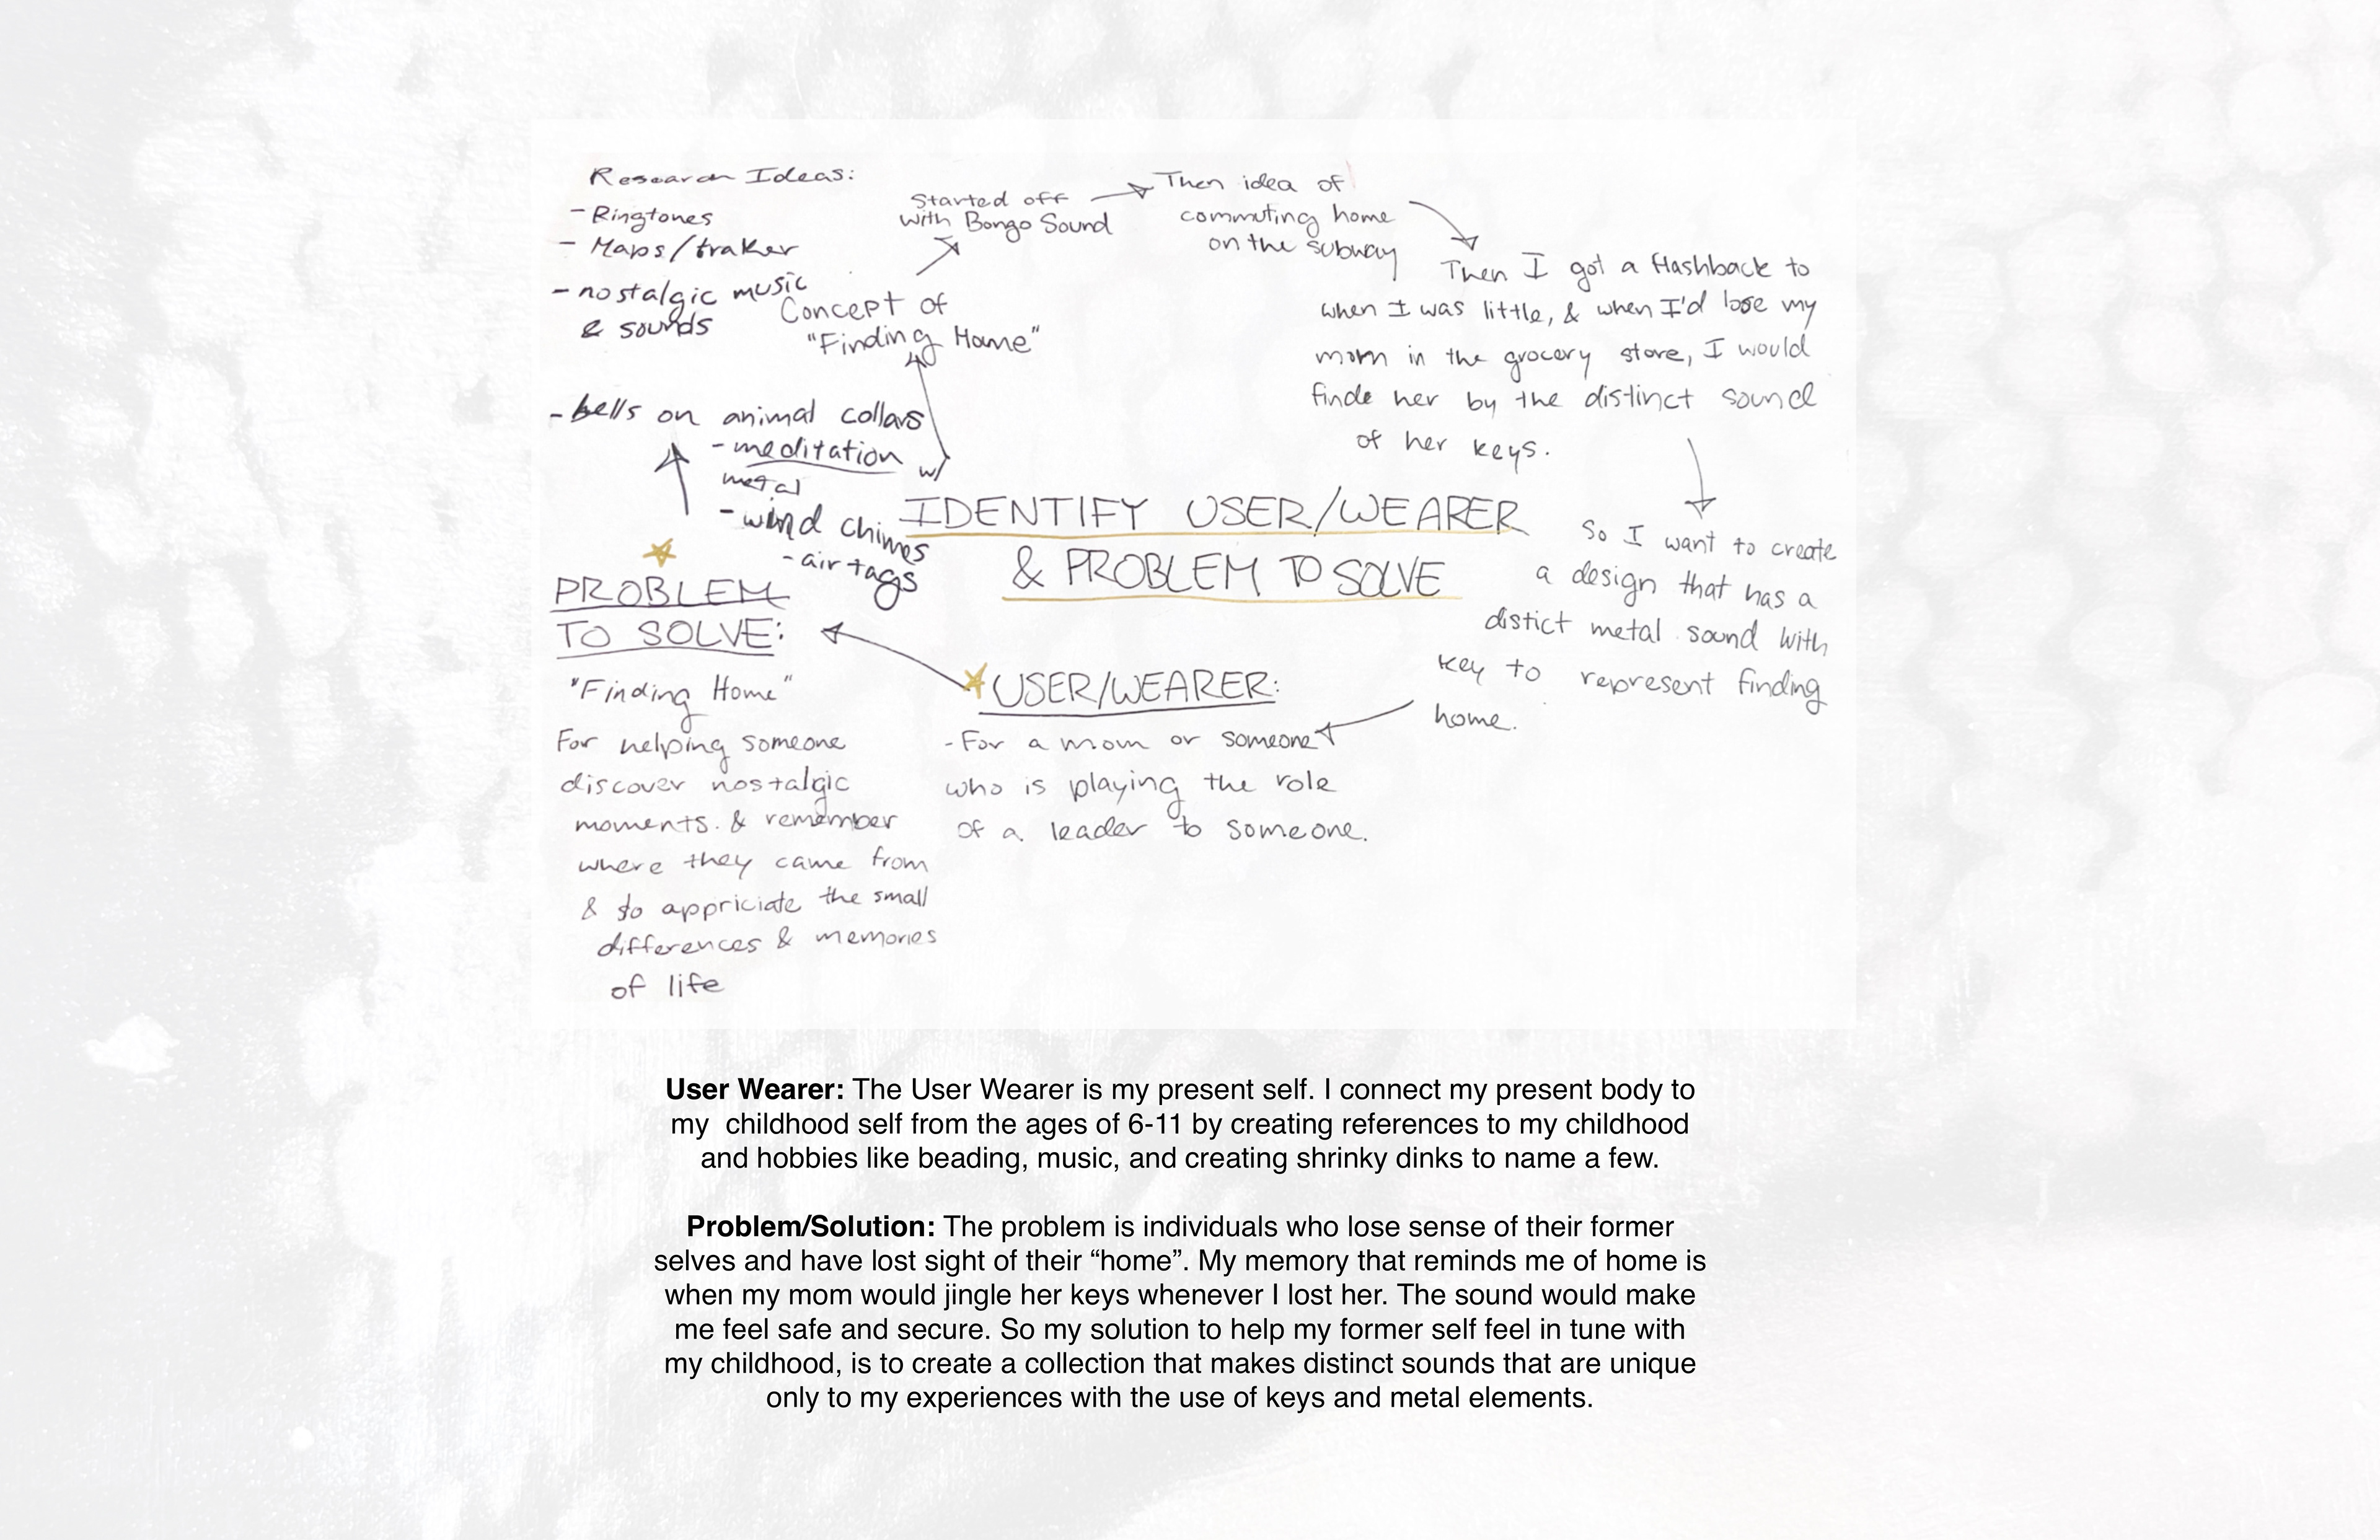 Research Ideas:
- Ringtones
- Maps/traker
- nostalgic music
& sounds
- bells on animal collars
- meditation
metal
- wind chimes
- air tags
IDENTIFY USER/WEARER
& PROBLEM TO SOLVE
w/
Concept of
"Finding Home"
Started off
with Bongo Sound
Then idea of
commuting home
on the subway
Then I got a flashback to
when I was little, & when I'd lose my
mom in the grocery store, I would
finde her by the distinct sound
of her keys.
So I want to create
a design that has a
distict metal sound with
key to represent finding
home.
USER/WEARER:
- For a mom or someone
who is playing the role
of a leader to someone.
PROBLEM
TO SOLVE:
"Finding Home"
For helping someone
discover nostalgic
moments. & remember
where they came from
& to appriciate the small
differences & memories
of life
User Wearer: The User Wearer is my present self. I connect my present body to
my childhood self from the ages of 6-11 by creating references to my childhood
and hobbies like beading, music, and creating shrinky dinks to name a few.
Problem/Solution: The problem is individuals who lose sense of their former
selves and have lost sight of their “home”. My memory that reminds me of home is
when my mom would jingle her keys whenever I lost her. The sound would make
me feel safe and secure. So my solution to help my former self feel in tune with
my childhood, is to create a collection that makes distinct sounds that are unique
only to my experiences with the use of keys and metal elements.